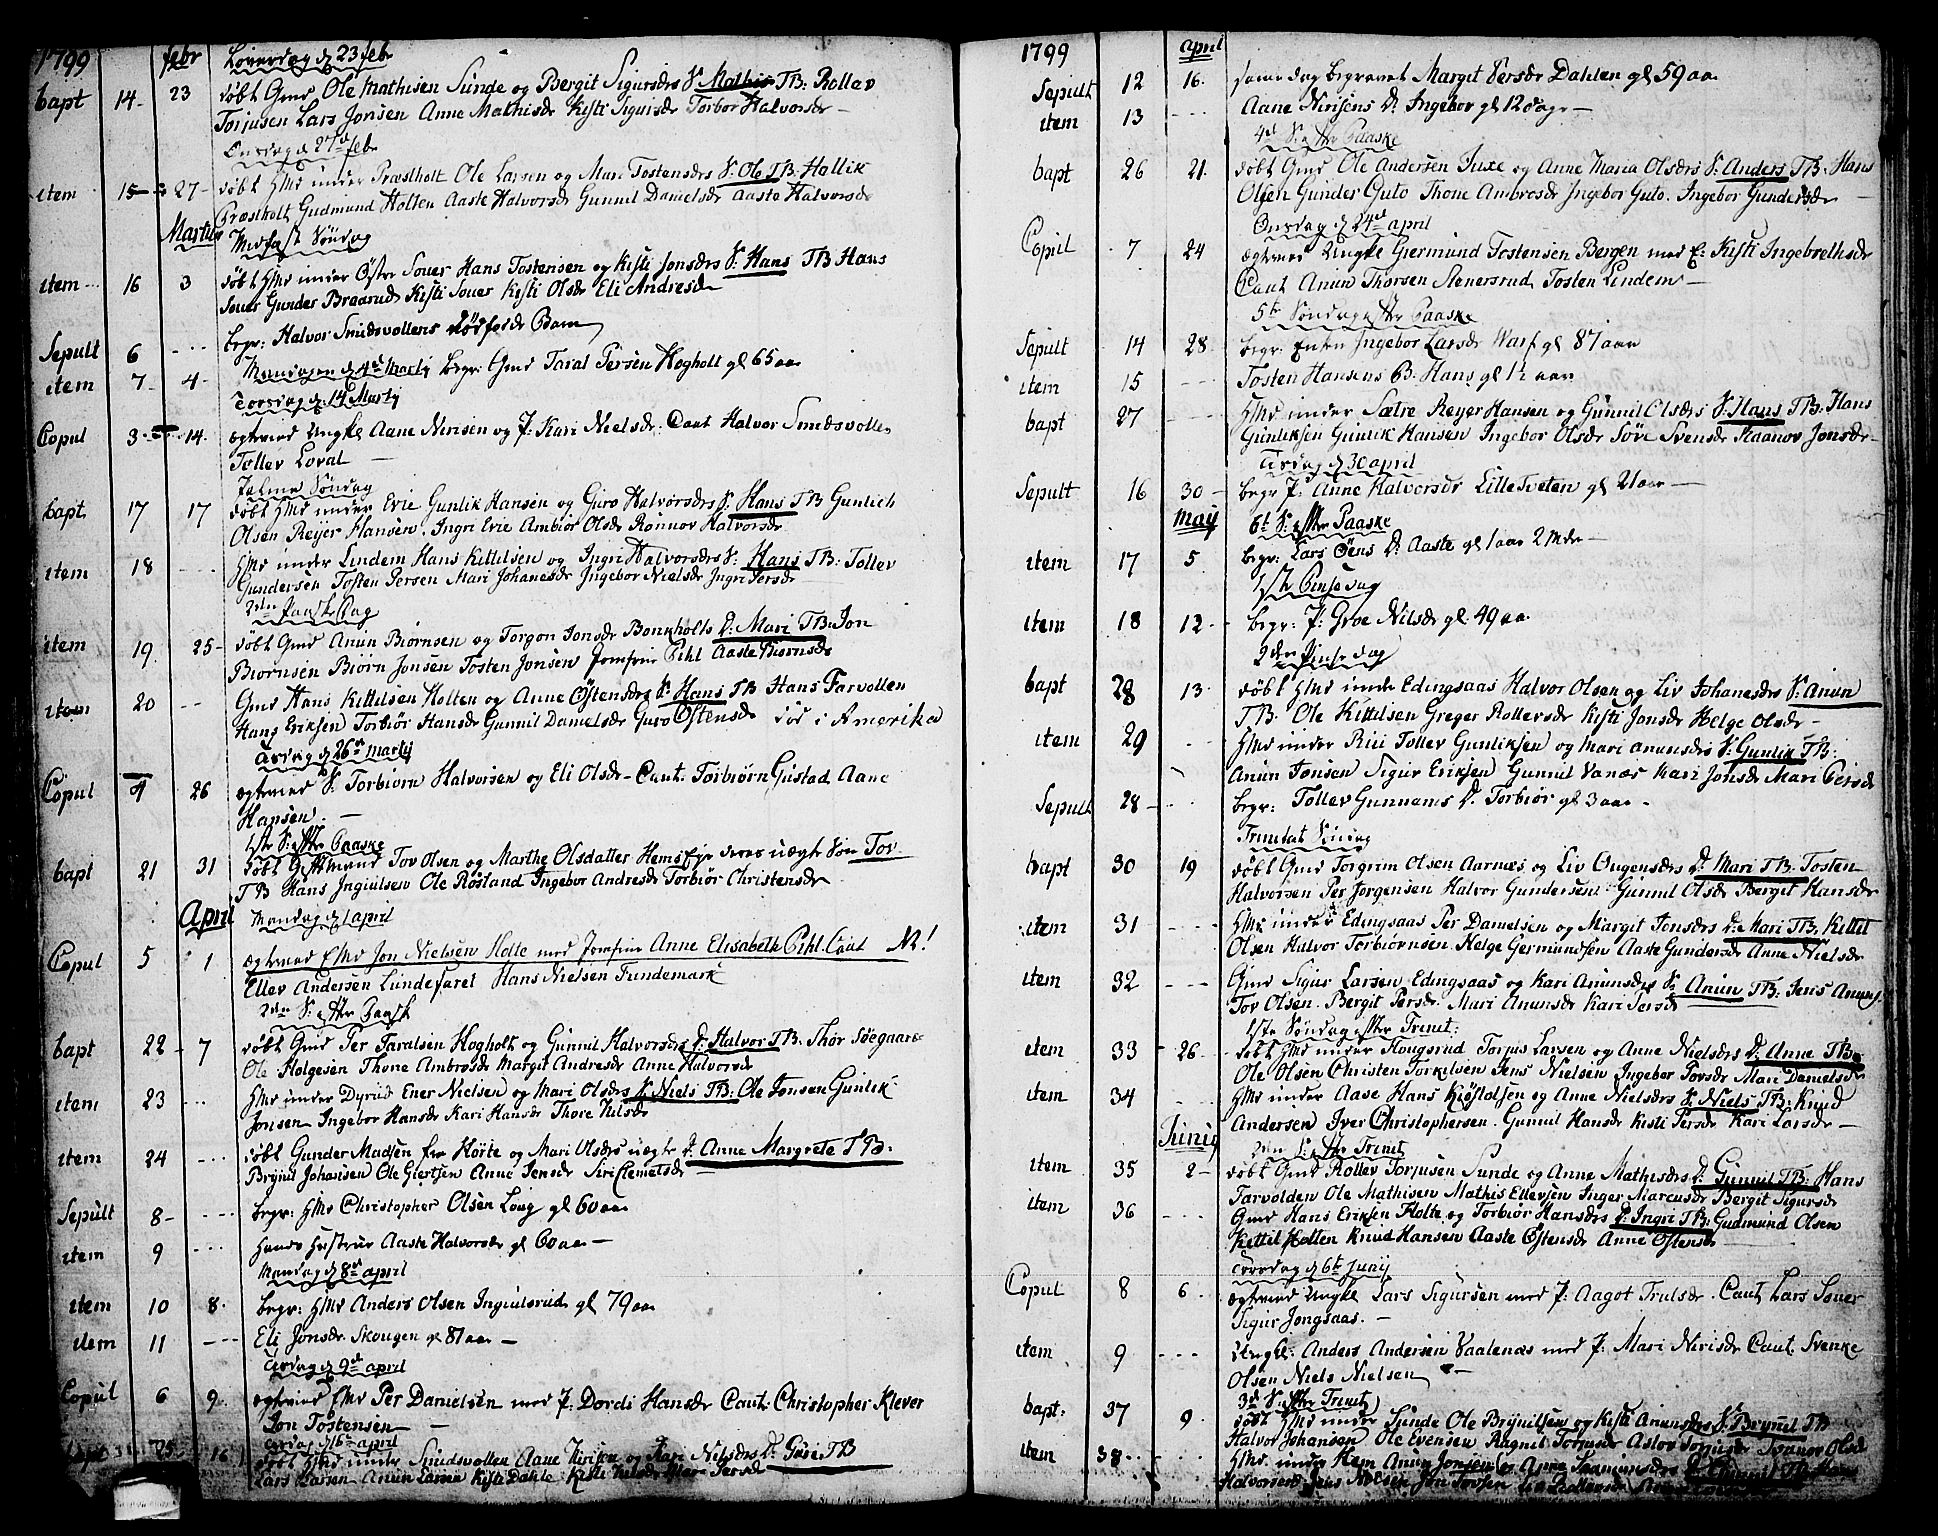 1799 febr Löverdag d 23 feb
bapt 14 23 döbt Gmd Ole Mathisen Sunde og Bergit Sigursdrs S. Mathis TB: Rollev
Torjusen Lars Jonsen Anne Mathisdr Kisti Sigursdr Torbor Halvorsdr
Onsdag d 27d feb
item 15 27 döbt Hmd under Præstholt Ole Larsen og Mari Tostensdrs S. Ole TB: Hallik
Præstholt Gudmund Holten Aaste Halvorsdr Gunnil Danielsdr Aaste Halvorsdr
Martij Midfast Söndag
item 16 3 döbt Hmd under Öster Souer Hans Tostensen og Kisti Jonsdrs S. Hans TB Hans
Souer Gunder Braarud Kisti Souer Kisti Olsdr Eli Andresdr
Sepult 6 begr: Halvor Smidsvollens dödfödde Barn
item 7 4 Mandagen d 4d Martij begr: Gmd Taral Persen Hogholt gl 65 aar
Torsdag d 14 Martij
Copul 3 14 egteviod Ungkl Aane Nirisen og P: Kari Nielsdr: Caut Halvor Smidsvollen
Tollev Loval
Palme Söndag
bapt 17 17 döbt Hmd under Evie Gunlik Hansen og Guro Halvorsdrs S. Hans TB Gunlich
Olsen Reyer Hansen Ingri Evie Ambior Olsdr Rannov Halvorsdr
item 18 Hmd under Lindem Hans Kittilsen og Ingri Halvorsdrs S. Hans TB: Tollev
Gundersen Tosten Persen Mari Johanesdr Ingebor Nielsdr Ingri Persdr
2den Paaske Dag
item 19 25 döbt Gmd Anun Biörnsen og Torgon Jonsdr Bonkholts D: Mari TB: Jon
Biornsen Biörn Jonsen Tosten Jonsen Jomfru Pihl Aaste Biornsdr
item 20 Gmd Hans Kittilsen Holten og Anne Östensdrs S. Hans TB Hans Tarvollen
Hans Eriksen Torbiör Hansdr Gunnil Danielsdr Guro Östensdr död i Amerika
Tirsdag d 26d Martij
Copul 4 26 egteviod S. Torbiorn Halvorsen og Eli Olsdr Caut. Torbiörn Gustad Aane
Hansen.
1ste S: efter Paaske
bapt 21 31 döbt Giftmand Tov Olsen og Marthe Olsdatter Hems Eje deres uægte Sön Tov
TB Hans Ingiulsen Ole Rösland Ingebor Andresdr Torbiör Christensdr
April Mandag d 1 april
Copul 5 1 egteviod Ekmd Jon Nielsen Holte med Jomfru Anne Elisabeth Pihl. Caut N!
Ellev Andersen Lundefaret Hans Nielsen Tundemark
2den S: efter Paaske
bapt 22 7 döbt Gmd Per Taralsen Hogholt og Gunnil Halvorsdrs S: Halvor TB. Thor Söegaare
Ole Holgesen Thone Ambrosdr Margit Andresdr Anne Halvorsdr
item 23 Hmd under Dyrud Ener Nielsen og Mari Olsdrs S. Niels TB: Ole Jonsen Gunlik
Jonsen Ingebor Hansdr Kari Hansdr Thore Nilsdr
item 24 döbt Gunder Madsen fra Hörte og Mari Olsdrs uægte D. Anne Margrete TB:
Brynil Johansen Ole Giertsen Anne Jensdr Siri Clemetsdr
Sepult 8 begr: Hmd Christopher Olsen Long gl 60 aar
item 9 Hands Hustrue Aaste Halvorsdr gl 60 aar
Mandag d 8d april
item 10 8 begr: Hmd Anders Olsen Ingiulsrud gl 79 aar
item 11 Eli Jonsdr Skougen gl 87 aar
Tirsdag d 9d april
Copul 6 9 egteviod Ekmd Per Danielsen med P: Dordi Hansdr Caut. Christopher Klever
Jon Tostensen
Tirsdag d 16d april
bapt 25 16 döbt Hmd under Smidsvollen Aane Nirisen og Kari Nilsdrs D. Guri TB
Lars Larsen Anun Larsen Kisti Dahle Kisti Nilsdr Persdr
1799 april
Sepult 12 16. samme dag begravet Margit Persdr Dahlen gl 59 aar
item 13 Aane Nirisens D. Ingebor gl 12 dage
4d S. efter Paaske
bapt 26 21. döbt Gmd Ole Andersen Juxe og Anne Maria Olsdrs S. Anders TB: Hans
Olsen Gunder Guto Thone Ambrosdr Ingebor Guto. Ingebor Gundersdr
Onsdag d 24d april
Copul 7 24 egteviod Ungkl Giermund Tostensen Bergen med E: Kisti Ingebrethsdr
Caut Anun Thorsen Stenersrud Tosten Lindem
5te Söndag efter Paaske
Sepult 14 28 begr: Enken Ingebor Larsdr Warf gl 87 aar
item 15 Tosten Hansens B. Hans gl 1½ aar
bapt 27 Hmd under Sætre Reyer Hansen og Gunnil Olsdrs S. Hans TB. Hans
Gunliksen Gunlik Hansen Ingebor Olsdr Söve Svensdr Raanov Jonsdr
Tirsdag d 30 april
Sepult 16 30 begr P: Anne Halvorsdr Lille Tveten gl 21 aar
May 6t S: efter Paaske
item 17 5 begr: Lars Öens D. Aaste gl 1 aar 2 Mdr
1ste Pinse dag
item 18 12 begr: P: Groe Nilsdr gl 49 aar
2den Pinse dag
bapt 28 13 döbt Hmd under Edingsaas Halvor Olsen og Liv Johanesdrs S: Anun
TB. Ole Kittilsen Greger Rollevsdr Kisti Jonsdr Helge Olsdr
item 29 Hmd under Rui Tollev Gunliksen og Mari Anunsdrs S. Gunlik TB:
Anun Jonsen Sigur Eriksen Gunnil Vanæs Kari Jonsdr Mari Persdr
Sepult 28 begr: Tollev Gunnams D. Torbiör gl 3 aar
Trinitat Söndag
bapt 30 19 döbt Gmd Torgrim Olsen Aarnæs og Liv Ougensdrs D. Mari TB. Tosten
Halvorsen Per Jorgensen Halvor Gundersen Gunnil Olsdr Bergit Hansdr
item 31 Hmd under Edingsaas Per Danielsen og Margit Jonsdrs D. Mari TB. Kittel
Olsen Halvor Torbiornsen Helge Germundsen Aaste Gundersdr Anne Nielsdr
item 32 Gmd Sigur Larsen Edingsaas og Kari Anunsdrs S. Anun TB: Jens Anuns
Tov Olsen. Bergit Persdr. Mari Anunsdr Kari Persdr
1ste Söndag efter Trinit:
item 33 26 döbt Hmd under Hougsrud Torjus Larsen og Anne Nielsdrs D: Anne TB
Ole Olsen Christen Torkilsen Jens Nielsen Ingebor Torsdr Mari Danielsdr
item 34 Hmd under Aase Hans Kiöstolsen og Anne Nielsdrs S. Niels TB: Knud
Andersen Iver Christophersen. Gunnil Hansdr Kisti Persdr Kari Larsdr
Junij 2den S: efter Trinit
item 35 2 döbt Gmd Rollev Torjusen Sunde og Anne Mathisdrs D. Gunnil TB: Hans
Tarvolden Ole Mathisen Mathis Ellevsen Inger Marcusdr Bergit Sigursdr
item 36 Gmd Hans Eriksen Holte og Torbiör Hansdrs D. Ingri TB: Gudmund Olsen
Kittil Holten Knud Hansen Aaste Östensdr Anne Östensdr
Torsdag d 6t Junij
Copul 8 6 egteviod Ungkl Lars Sigursen med P: Aagot Trulsdr. Caut Lars Souer
Sigur Jongsaas.
item 9 Ungkl: Anders Andersen Vaalenæs med P: Mari Nirisdr Caut. Svenke
Olsen Niels Nielsen
3d S. efter Trinit
bapt: 37 9 döbt Hmd under Sunde Ole Brynilsen og Kisti Anunsdrs S. Brynil TB
Halvor Johansen Ole Evensen Ragnil Torjusdr Aslov Torjusdr Ranov Olsdr
item 38 Hmd. under Hem Anun Jonsen og Anne Saamunsdrs D. Gunnil TB Hans
Halvorsen Jens Nielsen Jon Torsen